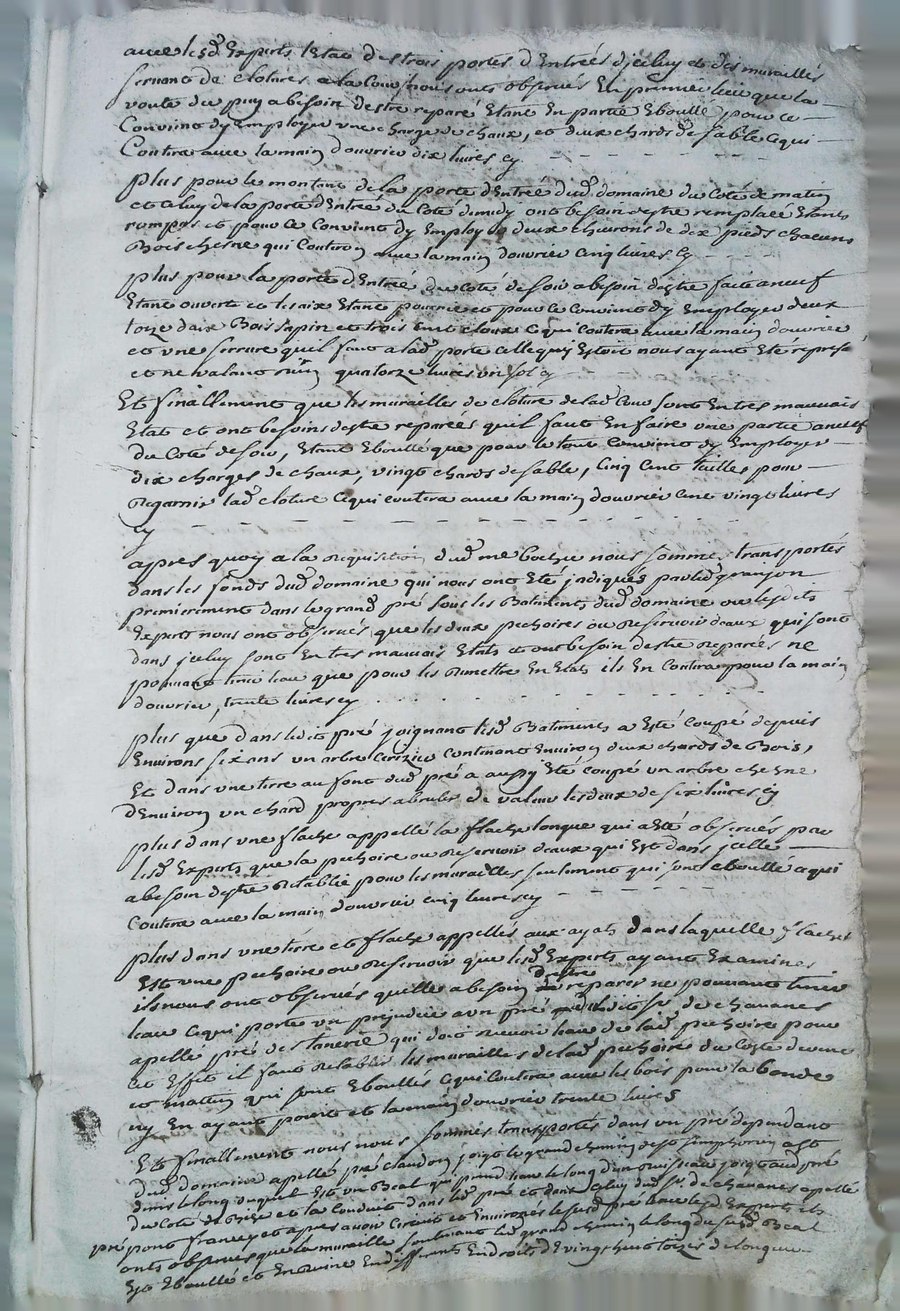 avec lesd Experts lEtat des trois portes d'Entrées d'jceluy et des murailles
servant de clotures a la Cour nous onts observés En premier lieu que la
voute du puy a besoin destre reparé Etant En partie Eboullé pour ce
Convient dy Employer une charge de chaux, et deux chards de sable ce qui
Coutera avec la main douvrier dix livres cy
plus pour le montant de la porte dEntrée dud domaine du Coté de matin
et celuy de la porte dEntrée du Coté de midy ont besoin destre remplacé Etants
rompus et pour ce Convient dy Employer deux chevrons de dix pieds chacuns
Bois chesne qui Couteron avec la main douvrier cinq livres Cy
plus pour la porte dEntrée du Coté de soir a besoin destre faite a neuf
Etant ouverte et les aix Etant pourries et pour ce convient dy Employer deux
toize daix Bois sapin et trois cent cloux ce qui coutera avec la main douvrier
et une serrure quil faut a lad porte celle qui Estoit nous ayant Eté represe
et ne valant rien quatorze livres un sol cy
Et finallement que les murailles de cloture de lad Cour sont En tres mauvais
Etat et ont besoins destre reparées quil faut En faire une partie a neuf
du Coté de soir, Etant Eboullé que pour le tout Convient dy Employer
dix charges de chaux, vingt chards de sable, Cinq Cent tuilles pour
Regarnir lad cloture ce qui coutera avec la main douvrier cent vingt livres
cy
apres quoy a la requisition dud me nous sommes transportés
dans les fonds dud domaine qui nous ont Eté jndiqués par led granjon
premierement dans le grand pré sous les Batiments dud domaine ou lesdits
Experts nous ont observés que les deux pechoires ou Reservoir deaux qui sont
dans jceluy sont En tres mauvais Etats et ont besoin destre Reparés ne
pouvant tenir leau que pour les Remettre En Etat ils En Coutera pour la main
douvrier, trente livres cy
plus que dans ledit pré joignant lesd Batiments a Eté coupé depuis
Environs six ans un arbre Cerizier contenant Environ deux chards de Bois,
Et dans une terre au font dud pré a aussy Eté coupé un arbre chesne
dEnviron un chard propres a bruler de valeur les deux de six livres cy
plus dans une flache appellé la flache longue qui a Eté observés par
lesd Experts que la pechoire ou Reservoir deaux qui Est dans jcelle
a besoin destre Retablie pour les murailles seulement qui sont eboullé ce qui
Coutera avec la main douvrier cinq livres cy
plus dans une terre et flache appellés aux ayats dans laquelle flache
Est une pechoire ou reservoir que lesd Experts ayant Examinés
ils nous ont observés quelle a besoin destre reparés ne pouvant tenir
leau ce qui porte un prejudice a un pré dudit Sr de chavanes
apellé pré des tanerie qui doit recevoir leau de lad pechoire pour
et Effet il faut retablir les murailles de lad pechoire du Costé de vent
et mattin qui sont Eboullés ce qui Coutera avec les bois pour la bonde
ny En ayant point et la main douvrier trente livres
Et finallement nous nous sommes transportés dans un pré dependant
dud domaine apellés pré claudon joigt le grand chemin de st simphorien a st
dans le long duquel Est un Beal qui prend leau le long dun ruisseau joigt aud pré
du Coté de Bize et la conduit dans led pré et dans Celuy dud Sr. de chavanes appellé
pré pont francey et apres avoir Circuit et Environé le susd pré lesd Experts ils
onts observés que la muraille soutenant led grand chemin le long du susd Beal
Est Eboullé et En ruine En differents Endroits dEvingt huit toizes de longueur